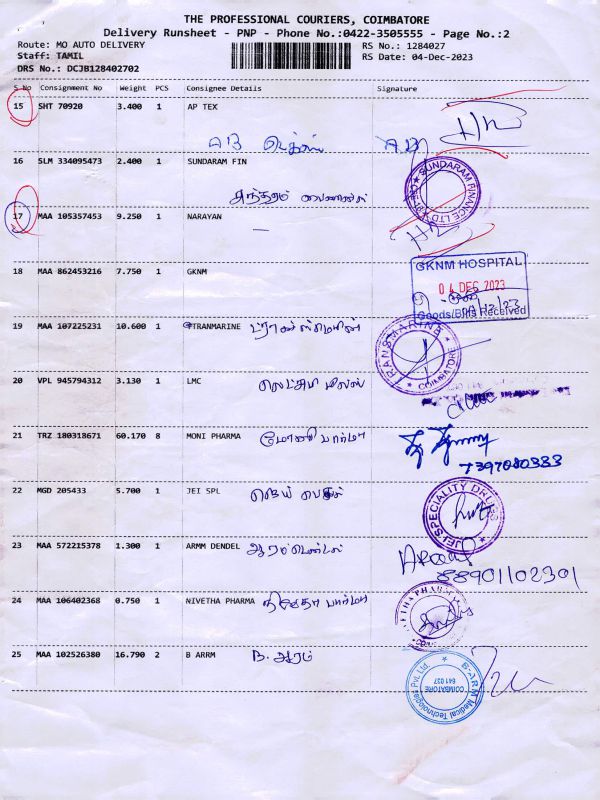 THE PROFESSIONAL COURIERS, COIMBATORE
Delivery Runsheet - PNP - Phone No.:0422-3505555 - Page No.:2
Route: MO AUTO DELIVERY
RS No.: 1284027
Staff: TAMIL
RS Date: 04-Dec-2023
DRS No.: DCJB128402702
S No Consignment No Weight PCS Consignee Details Signature
15 SHT 70920 3.400 1 AP TEX
AB டெக்ஸ் AB
16 SLM 334095473 2.400 1 SUNDARAM FIN
சுந்தரம் பைனான்ஸ்
SUNDARAM FINANCE LTD
17 MAA 105357453 9.250 1 NARAYAN
18 MAA 862453216 7.750 1 GKNM
GKNM HOSPITAL
04 DEC 2023
Goods/Bills Received
19 MAA 107225231 10.600 1 TRANMARINE
TRANSMARINE
COIMBATORE
20 VPL 945794312 3.130 1 LMC லெட்சுமி மில்ஸ்
21 TRZ 180318671 60.170 8 MONI PHARMA மோனி பார்மா
7397080333
22 MGD 205433 5.700 1 JEI SPL
JEI SPECIALITY DRUGS
23 MAA 572215378 1.300 1 ARMM DENDEL ஆரம்டெண்டல்
88901102301
24 MAA 106402368 0.750 1 NIVETHA PHARMA நிவேதா பார்மா
25 MAA 102526380 16.790 2 B ARRM B. ஆரம்
B-ARM Medical Technologies Pvt. Ltd.
COIMBATORE
641 037